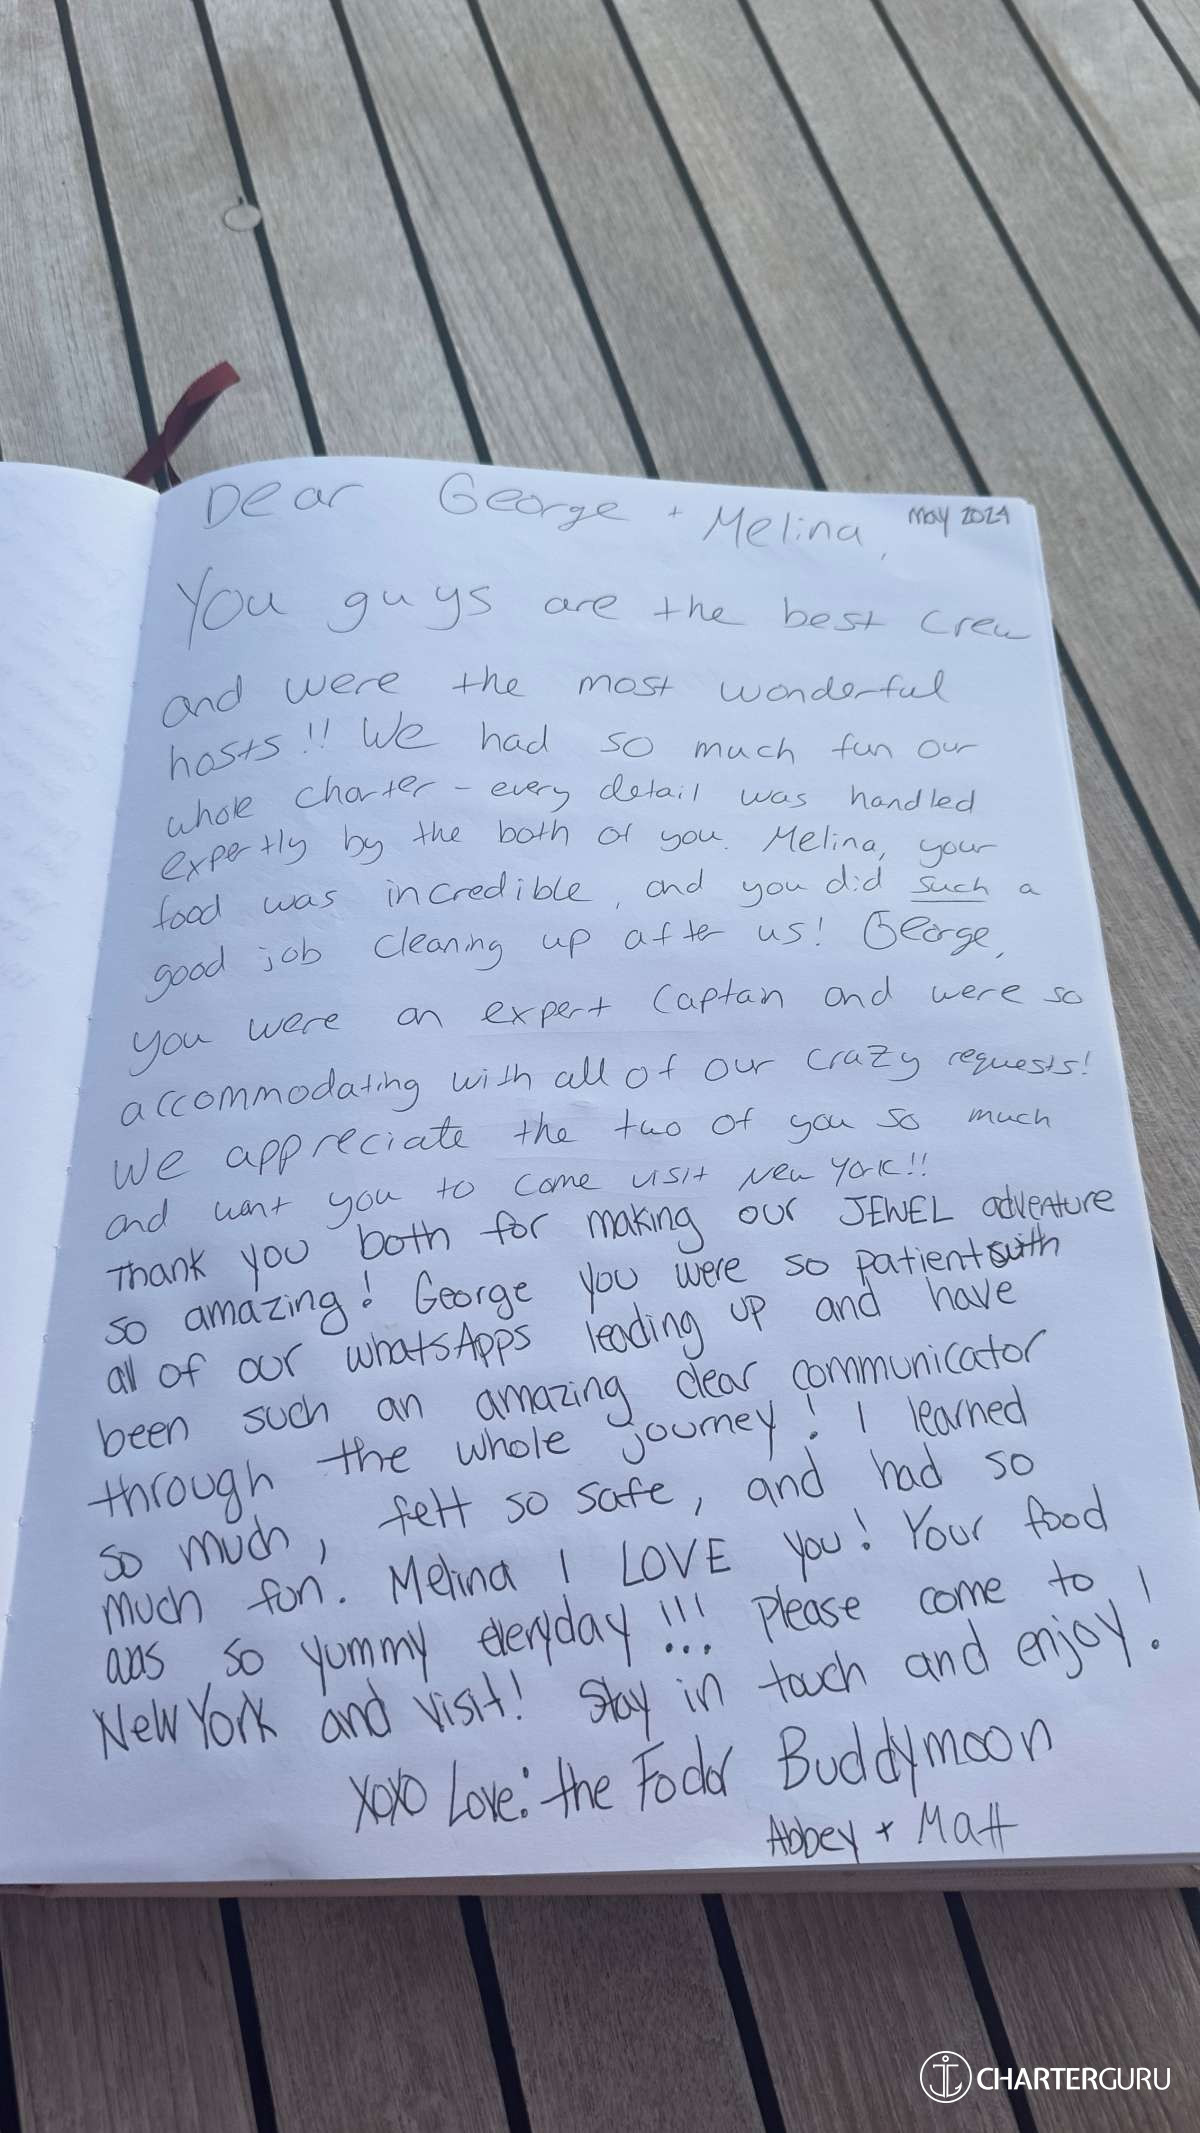 Dear George + Melina,
May 2024
You guys are the best crew
and were the most wonderful
hosts!! We had so much fun our
whole charter - every detail was handled
expertly by the both of you. Melina, your
food was incredible, and you did such a
good job cleaning up after us! George,
you were an expert Captain and were so
accommodating with all of our crazy requests!
We appreciate the two of you so much
and want you to come visit New York!!
Thank you both for making our JEWEL adventure
so amazing! George you were so patient with
all of our whatsApps leading up and have
been such an amazing clear communicator
through the whole journey! I learned
so much, felt so safe, and had so
much fun. Melina I LOVE you! Your food
was so yummy everyday!!! Please come to
New York and visit! Stay in touch and enjoy!
XOXO Love: the Fodor Buddymoon
Abbey + Matt
CHARTERGURU